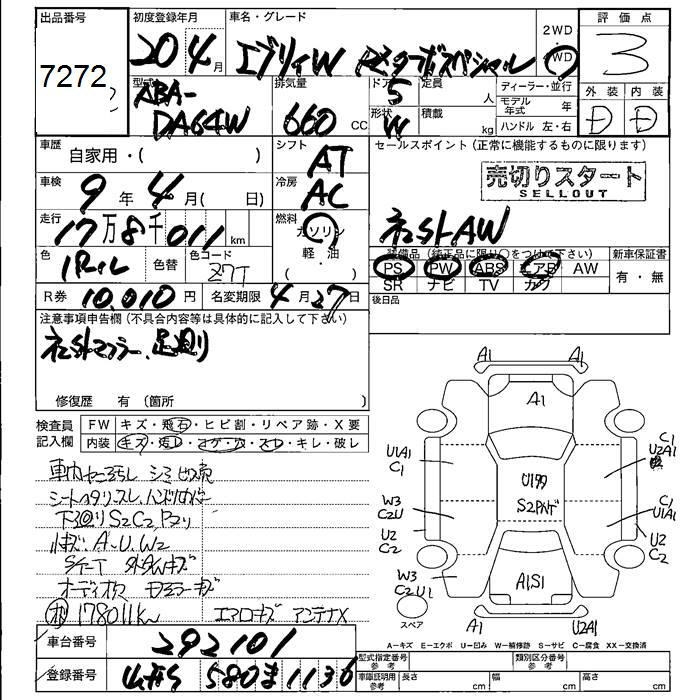 出品番号
7272
初度登録年月
20 4月
車名・グレード
エブリイW PZターボスペシャル
2WD
4WD
評価点
3
型式
ABA-
DA64W
排気量
660 CC
ドア
5
形状
W
定員
人
積載
kg
ディーラー・並行
モデル年式 年
ハンドル 左・右
外装 内装
D D
車歴
自家用・( )
シフト
AT
セールスポイント(正常に機能するものに限ります)
売切りスタート
SELLOUT
車検
9年4月( 日)
冷房
AC
走行
17万8千011km
燃料
ガソリン
軽・油
( )
社外AW
色
パール
色替
色コード
Z7T
装備品(純正品に限り○をつけて下さい)
PS PW ABS エアB AW
SR ナビ TV カワ
新車保証書
有・無
R券 10,010円
名変期限 4月27日
後日品
注意事項申告欄(不具合内容等は具体的に記入して下さい)
社外マフラー、足廻り
修復歴 有(箇所 )
検査員
記入欄
FW キズ・飛石・ヒビ割・リペア跡・X要
内装 キズ・汚レ・コゲ・穴・スレ・キレ・破レ
下廻り S2C2
小キズ A・U・W2
178011km
アンテナX
A1 A1
A1
U1A1
C1
W3
C2U1
U2
C2
W3
C2U1
U199
S2
A1S1
C1
U2A1
C1
U1A1
U2
C2
スペア
A1
U2A1
A-キズ E-エクボ U-凹み W-補修跡 S-サビ C-腐食 XX-交換済
車台番号 292101
登録番号 山形 580 ま 1136
型式指定番号
参考
類別区分番号
参考
車庫証明用
参考
長さ cm
幅 cm
高さ cm